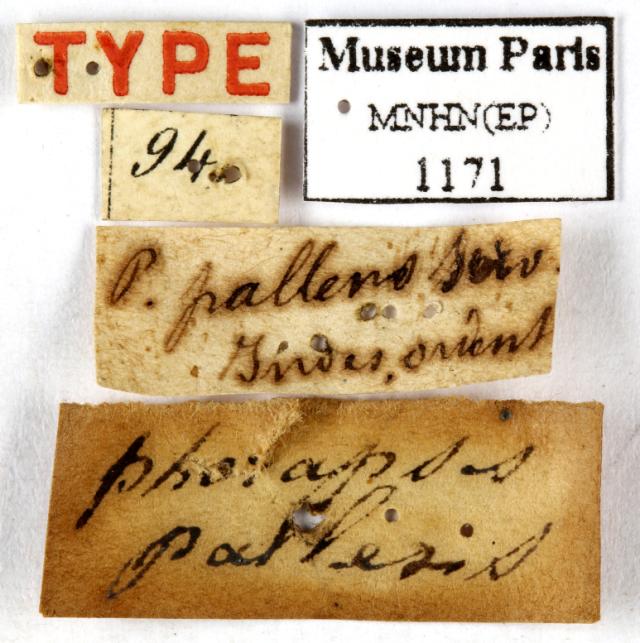 TYPE
Museum Paris
MNHN(EP)
1171
94.
P. pallens Serv.
Indes, orient
phoraspis
pallens